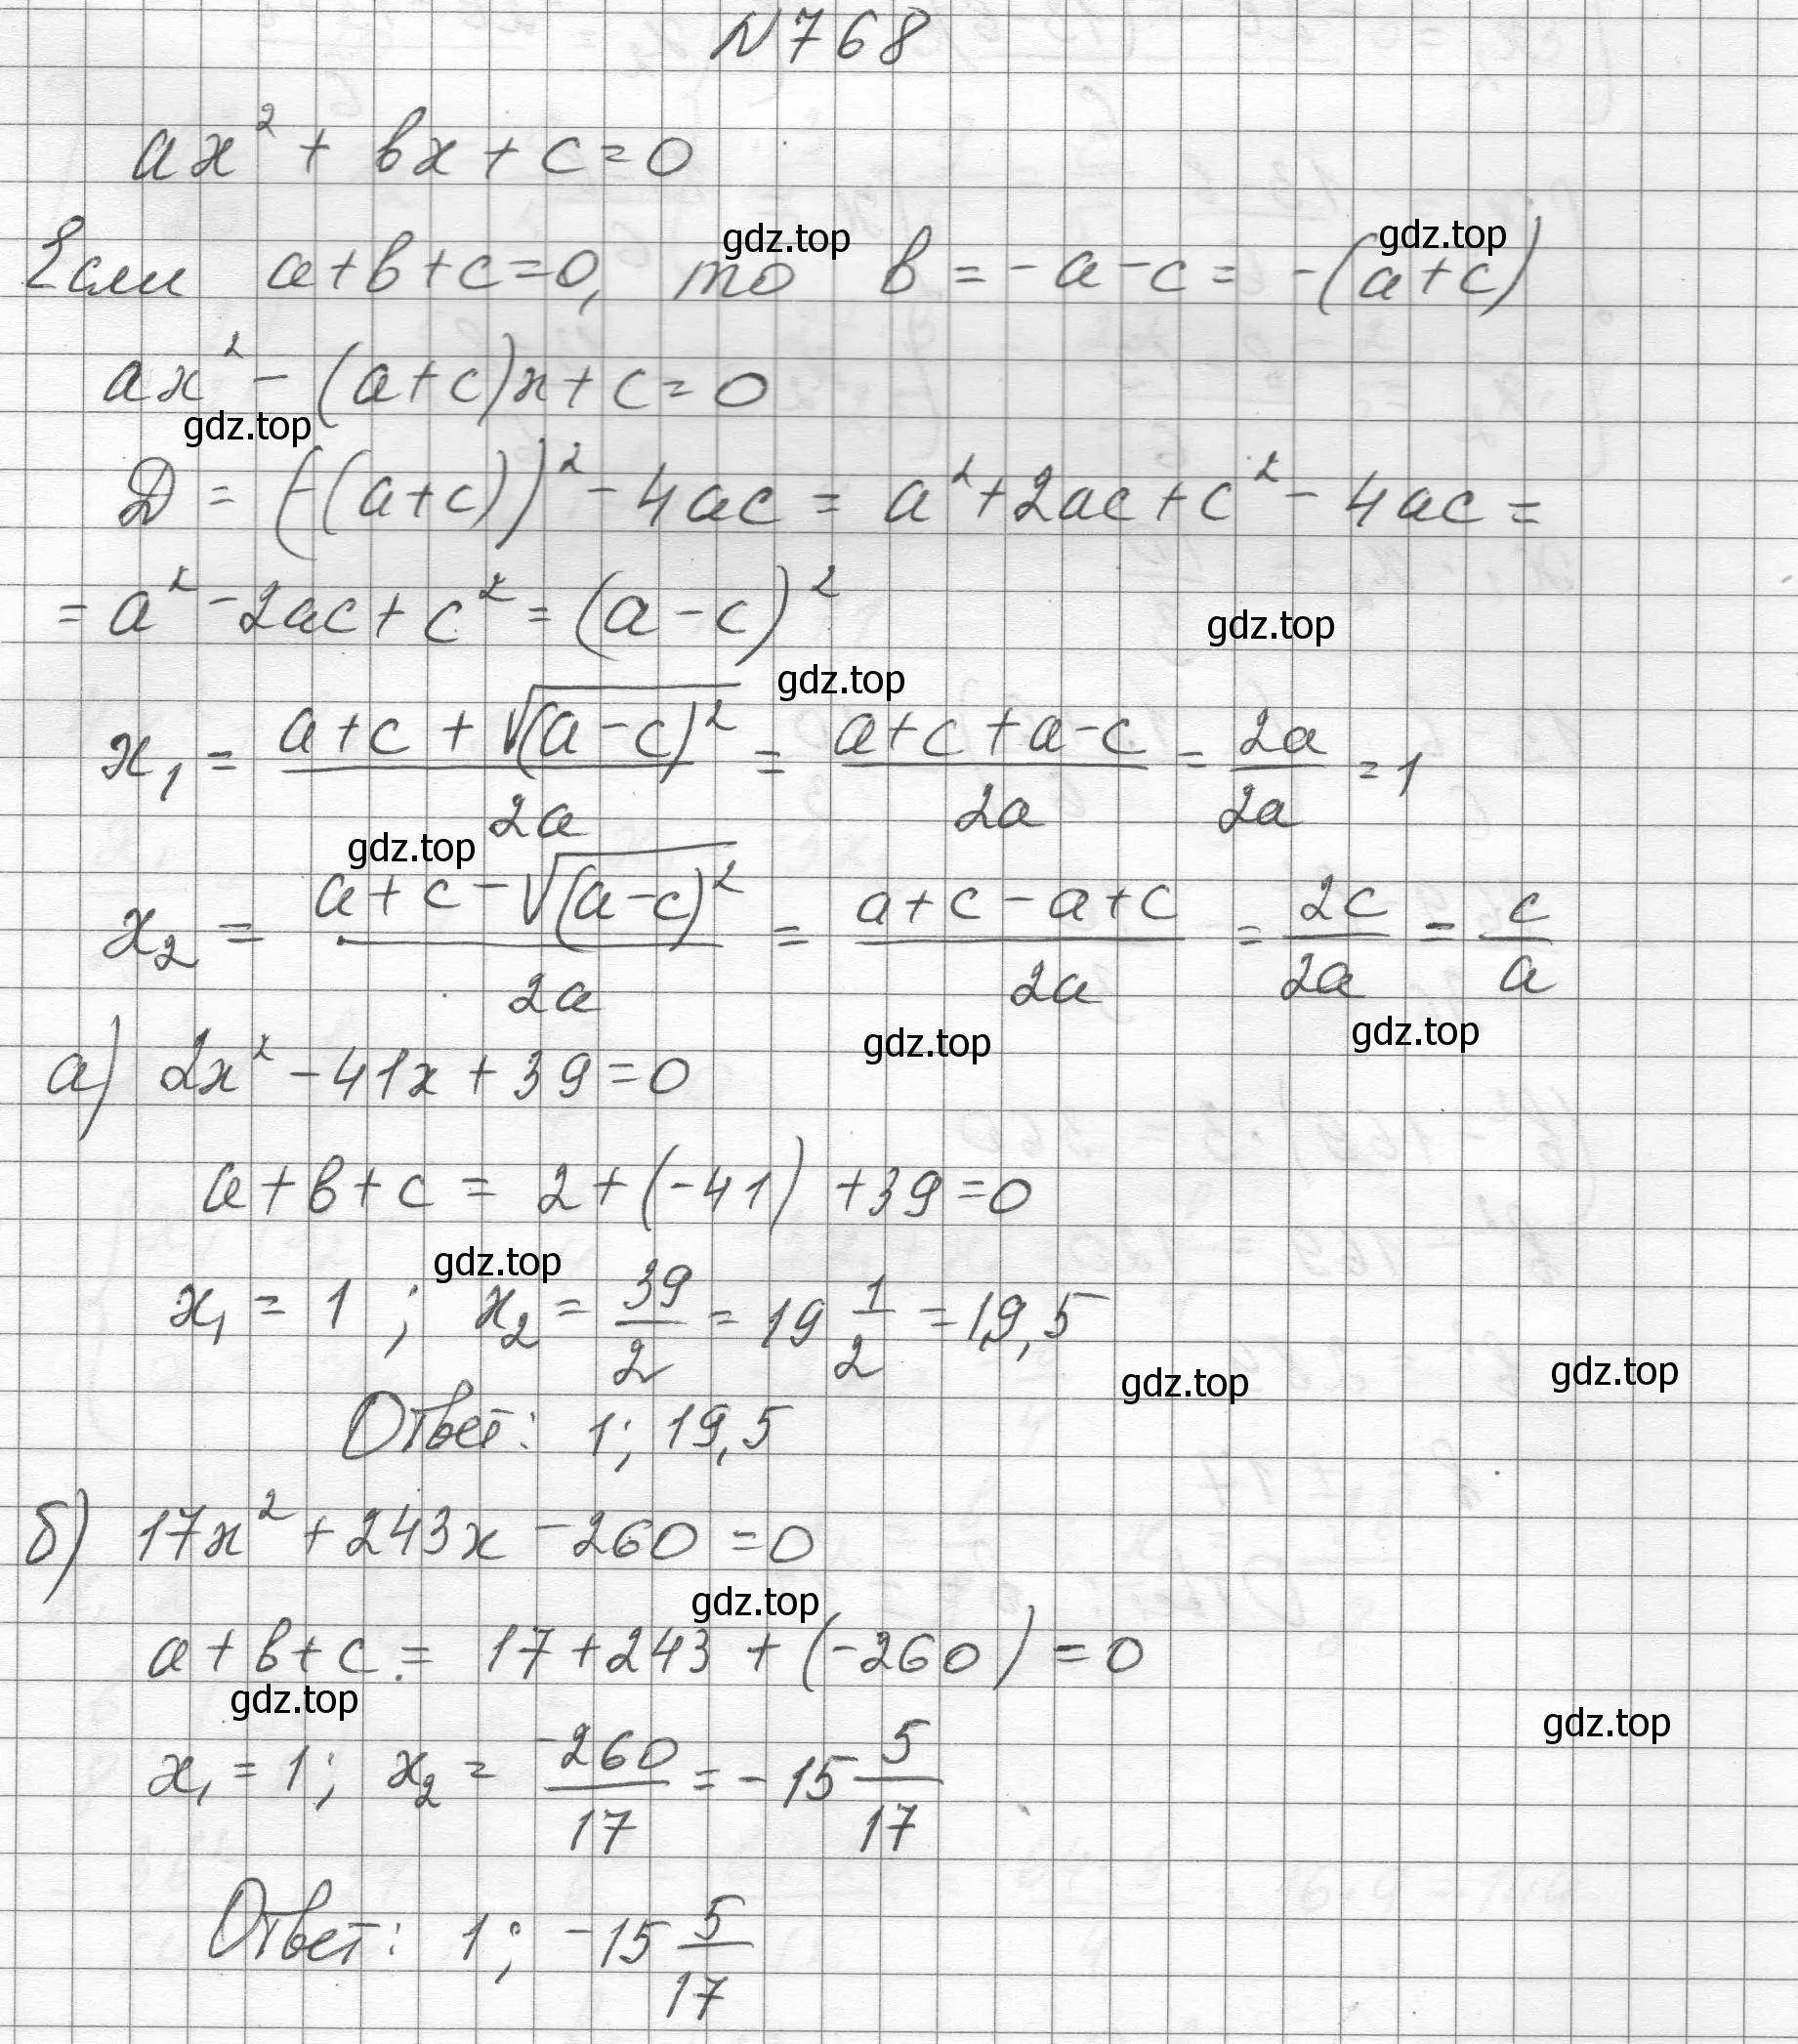 N768
ax² + bx + c = 0
Если a+b+c=0, то b = -a-c = -(a+c)
ax² - (a+c)x + c = 0
D = (-(a+c))² - 4ac = a² + 2ac + c² - 4ac =
= a² - 2ac + c² = (a-c)²
x₁ = (a+c+√(a-c)²)/2a = (a+c+a-c)/2a = 2a/2a = 1
x₂ = (a+c-√(a-c)²)/2a = (a+c-a+c)/2a = 2c/2a = c/a
а) 2x² - 41x + 39 = 0
a+b+c = 2+(-41)+39=0
x₁ = 1 ; x₂ = 39/2 = 19 1/2 = 19,5
Ответ: 1; 19,5
б) 17x² + 243x - 260 = 0
a+b+c = 17+243+(-260) = 0
x₁ = 1; x₂ = -260/17 = -15 5/17
Ответ: 1; -15 5/17
gdz.top
gdz.top
gdz.top
gdz.top
gdz.top
gdz.top
gdz.top
gdz.top
gdz.top
gdz.top
gdz.top
gdz.top
gdz.top
gdz.top